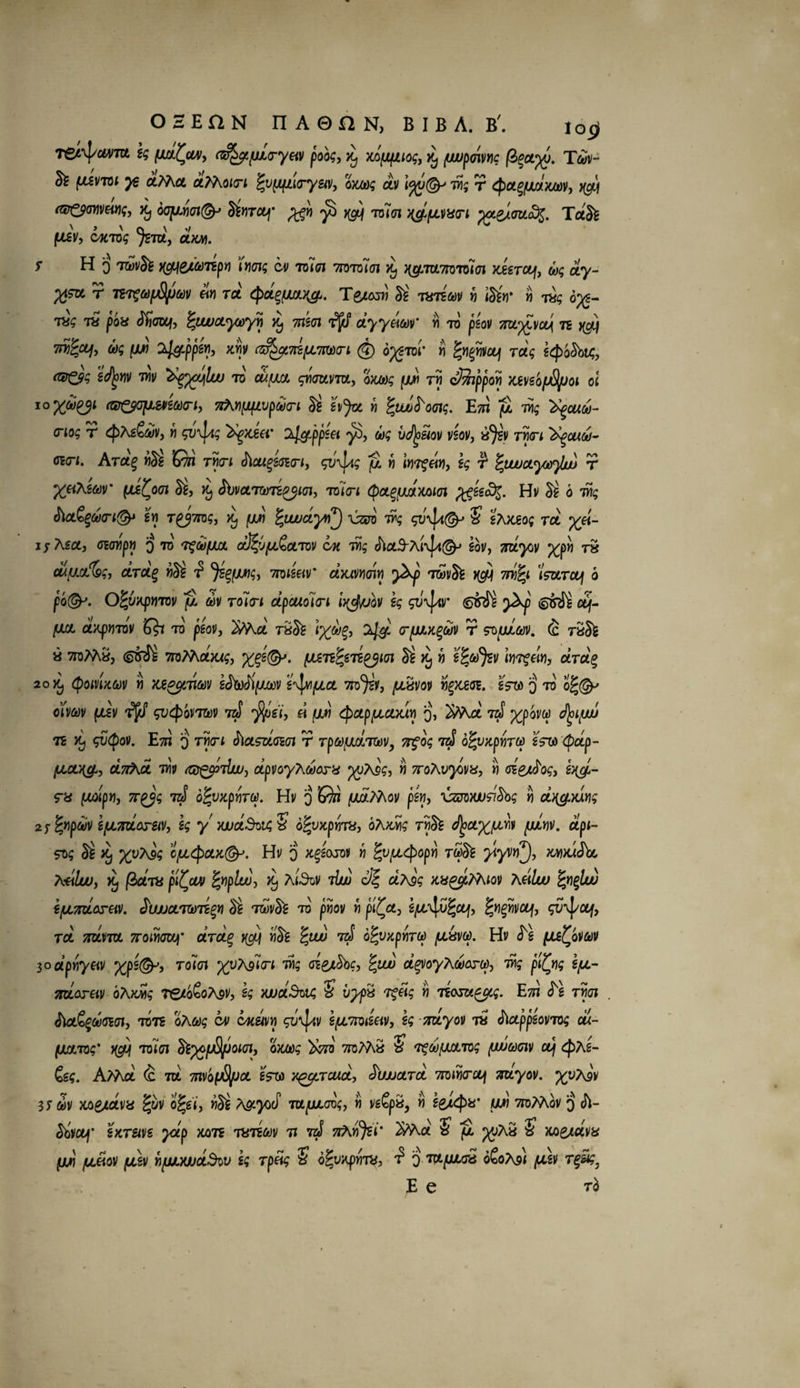 ΟΞΕΩΝ ΠΑΘΩΝ, ΒΙΒΛ. Β'. 109
τρίψαντα ἐς μάζαν, παραμίσγειν ῥοὸς, καὶ κόμμιος, καὶ μυρσίνης βραχύ. Τῶν-
δε μέντοι γε ἄλλα ἄλλοισι ξυμμίσγειν, ὅκως ἂν ἰσχύος τῆς τ φαρμάκων, καὶ
προσηνείης, καὶ ὀσμήσιος δέηται· χρὴ γὰρ καὶ τοῖσι καμνουσι χαρίσασθαι. Τάδε
μὲν, ἐκτὸς γένεια, ἀκμή.
5 Η δὲ τῶνδε καιριωτέρη ἴησις ἐν τοῖσι ποτοῖσι καὶ καταποτοῖσι κέεται, ὡς ἄγ-
χιστα τ τετρωμένων εἴη τὰ φάρμακα. Τρισσὴ δὲ τουτέων ἡ ἰδέη· ἢ τοὺς ὀχε-
τοὺς τοῦ ῥόου δῆσαι, ξυναγωγῇ καὶ πιέσι τῶν ἀγγείων· ἢ τὸ ῥέον παχῦναι τε καὶ
πῆξαι, ὡς μὴ διαρρέῃ, κἢν παραπέμπωσι οἱ ὀχετοί· ἢ ξηρῆναι τὰς ἐφόδους,
πρὸς ἕδρην τὴν ἀρχαίην τὸ αἷμα στήσαντα, ὅκως μὴ τῇ ἐπιρροῇ κενεόμενοι οἱ
10 χῶροι προσμενέωσι, πλημμυρῶσι δὲ ἔνθα ἡ ξυνδοσις. Επὶ μὲν τῆς ἀραιώ-
σιος τ φλεβῶν, ἡ στύψις ἀρκέει· διαρρέει γὰρ, ὡς ὑδρεῖον νέον, οὕτω τῇσι ἀραιώ-
σεσι. Ατὰρ ἠδὲ ἐπὶ τῇσι διαιρέσεσι, στύψις μὲν ἡ ἰητρείη, ἐς τ ξυναγωγὴν τ
χειλέων· μείζοσι δὲ, καὶ δυνατωτέροισι, τοῖσι φαρμάκοισι χρέεσθαι. Ην δὲ ὁ τῆς
διαβρώσιος ἔῃ τρόπος, καὶ μὴ ξυνάγηται ὑπὸ τῆς στύψιος τοῦ ἕλκεος τὰ χεί-
15 λεα, σεσηρὴ δὲ τὸ τρῶμα ἀξύμβατον ἐκ τῆς διαθλίψιος ἐὸν, πάγον χρὴ τοῦ
αἵματος, ἀτὰρ ἠδὲ τ θέρμης, ποιέειν· ἀκινησίῃ γὰρ τῶνδε καὶ πήξι ἵσταται ὁ
ῥόος. Οξύκρητον μὲν ὦν τοῖσι ἀραιοῖσι ἱκανὸν ἐς στύψιν· οὐδὲ γὰρ οὐδὲ αἷ-
μα ἄκρητόν ἐστι τὸ ῥέον, ἀλλὰ τοῦδε ἰχὼρ, διὰ σμικρῶν τ στομίων. καὶ τοῦδε
οὐ πολλοῦ, οὐδὲ πολλάκις, χρέος. μετεξετέροισι δὲ καὶ ἡ ἔξωθεν ἰητρείη, ἀτὰρ
20 καὶ φοινίκων ἢ κερατίων ἐδωδίμων ἕψημα ποθὲν, μοῦνον ἤρκεσε. ἔστω δὲ τὸ ὄξος
οἴνων μὲν τῶν στυφόντων τῷ γένει, εἰ μὴ φαρμακίη δὲ, ἀλλὰ τῷ χρόνῳ δριμύ
τε καὶ στῦφον. Επὶ δὲ τῇσι διαστάσεσι τ τρωμάτων, πρὸς τῷ ὀξυκρήτῳ ἔστω φάρ-
μακα, ἁπλᾶ τὴν πρώτην, ἀρνογλώσσου χυλὸς, ἢ πολυγόνου, ἢ σέριδος, ἑκά-
στου μοίρη, πρὸς τῷ ὀξυκρήτῳ. Ην δὲ ἐπὶ μᾶλλον ῥέῃ, ὑποκυστίδος ἢ ἀκακίης
25 ξηρῶν ἐμπάσσειν, ἐς γ κυάθους τοῦ ὀξυκρήτου, ὁλκῆς τῆσδε δραχμὴν μίην. ἄρι-
στος δὲ καὶ χυλὸς ὄμφακος. Ην δὲ κρέσσον ἡ ξυμφορὴ τῶνδε γίγνηται, κηκῖδα
λείην, καὶ βάτου ῥίζαν ξηρὴν, καὶ λίθον τὴν ἐξ ἁλὸς κουράλλιον λείην ξηρὴν
ἐμπάσσειν. δυνατωτέρη δὲ τῶνδε τὸ ῥῆον ἡ ῥίζα, ἐμψῦξαι, ξηρῆναι, στῦψαι,
τὰ πάντα ποιῆσαι· ἀτὰρ καὶ ἥδε ξὺν τῷ ὀξυκρήτῳ μούνῳ. Ην δὲ μεζόνων
30 ἀρήγειν χρέος, τοῖσι χυλοῖσι τῆς σέριδος, ξὺν ἀρνογλώσσῳ, τῆς ῥίζης ἐμ-
πάσσειν ὁλκῆς τριόβολον, ἐς κυάθους τοῦ ὑγροῦ τρεῖς ἢ τέσσαρας. Επὶ δὲ τῇσι
διαβρώσεσι, τότε ὅλως ἐν ἐκείνῃ στύψιν ἐμποιέειν, ἐς πάγον τοῦ διαρρέοντος αἵ-
ματος· καὶ τοῖσι δεχομένοισι, ὅκως ἀπὸ πολλοῦ τοῦ τρώματος μύωσιν αἱ φλέ-
βες. Αλλὰ καὶ τὰ πινόμενα ἔστω κραταιὰ, δυνατὰ ποιῆσαι πάγον. χυλὸν
35 ὦν κοριάνου ξὺν ὄξει, ἠδὲ λαγωοῦ ταμίσος, ἢ νεβροῦ, ἢ ἐρίφου· μὴ πολλὸν δὲ δι-
δόναι· ἔκτεινε γάρ κοτε τουτέων τι τῷ πλήθει· ἀλλὰ τοῦ μὲν χυλοῦ τοῦ κοριάνου
μὴ μεῖον μὲν ἡμικυάθου ἐς τρεῖς τοῦ ὀξυκρήτου, τ δὲ ταμίσου ὀβολοὶ μὲν τρεῖς,
E e τὸ